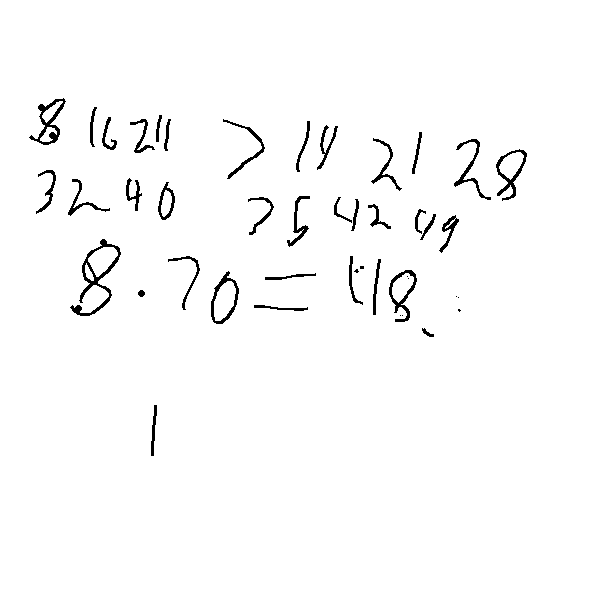 8 16 24 7 14 21 28
32 40 35 42 49
8 . 70 = 48
1